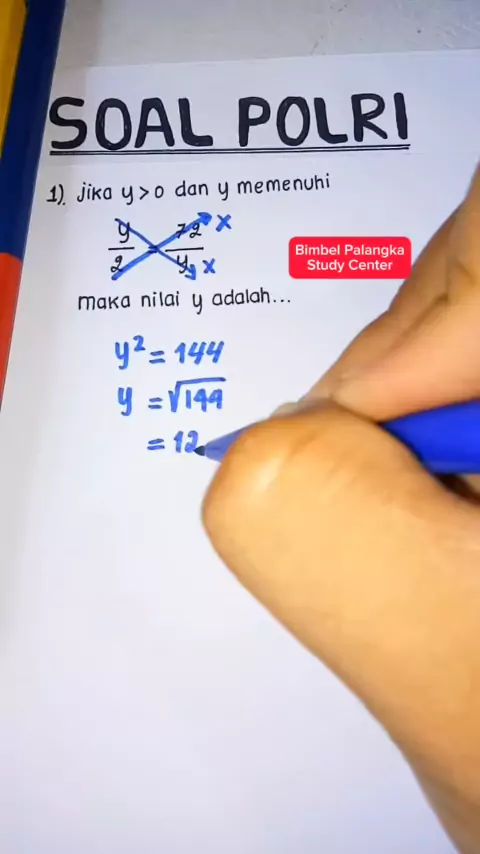 SOAL POLRI
1). Jika y > 0 dan y memenuhi
y/2 = 72/y
x
x
Bimbel Palangka
Study Center
maka nilai y adalah...
y² = 144
y = √144
= 12